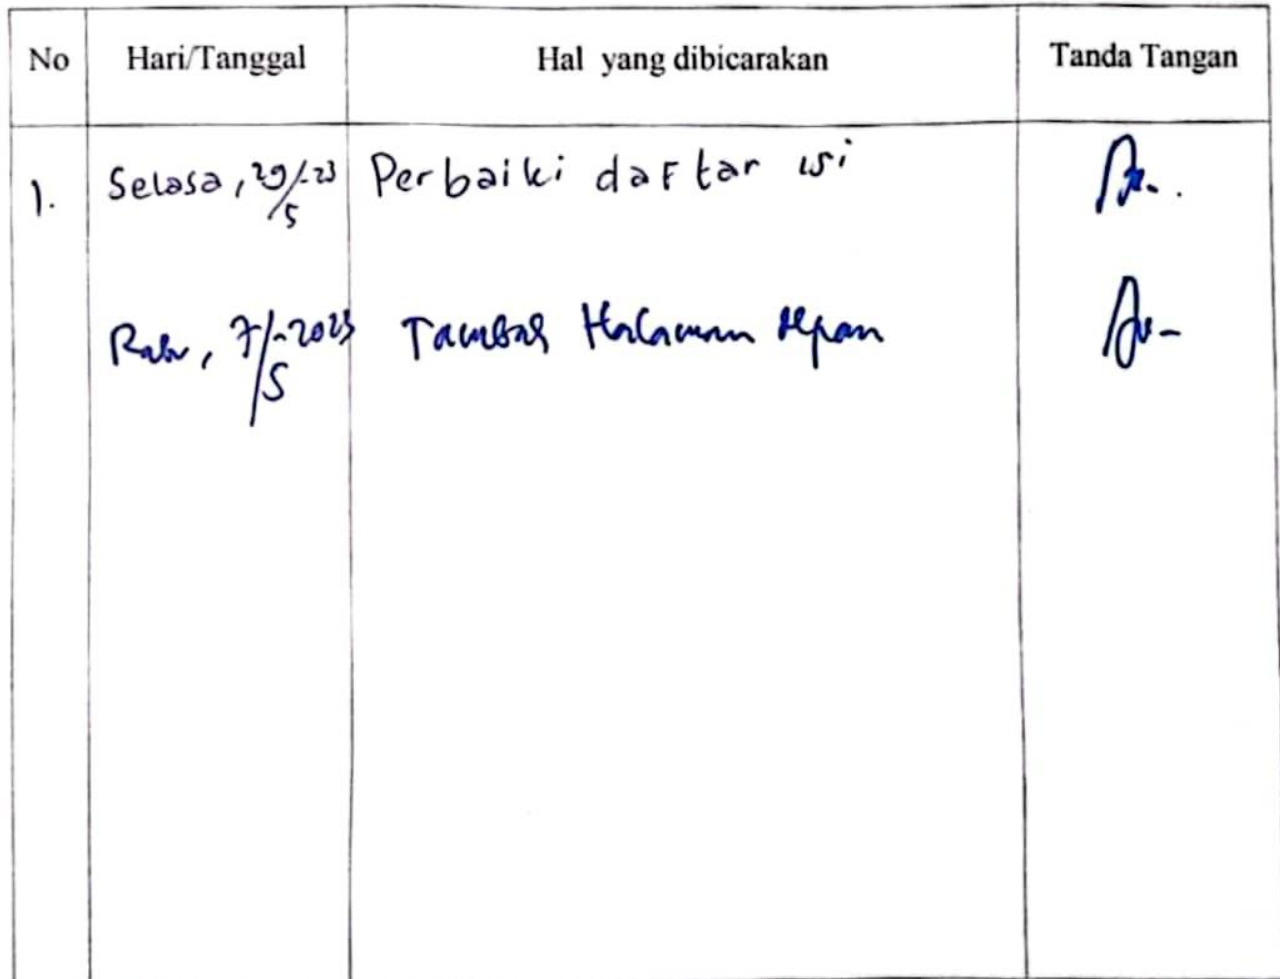 No Hari/Tanggal Hal yang dibicarakan Tanda Tangan
1. Selasa, 29/5-23 Perbaiki daftar isi
Rabu, 7/5-2023 Tambah Halaman depan